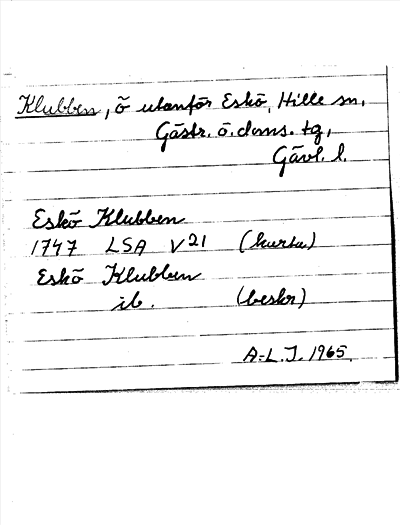 Klubben, ö utanför Eskö, Hille sn,
Gästr. ö. doms. tg,
Gävl. l.
Eskö Klubben
1747 LSA V21 (karta)
Eskö Klubben
ib. (beskr)
A-L. J. 1965.